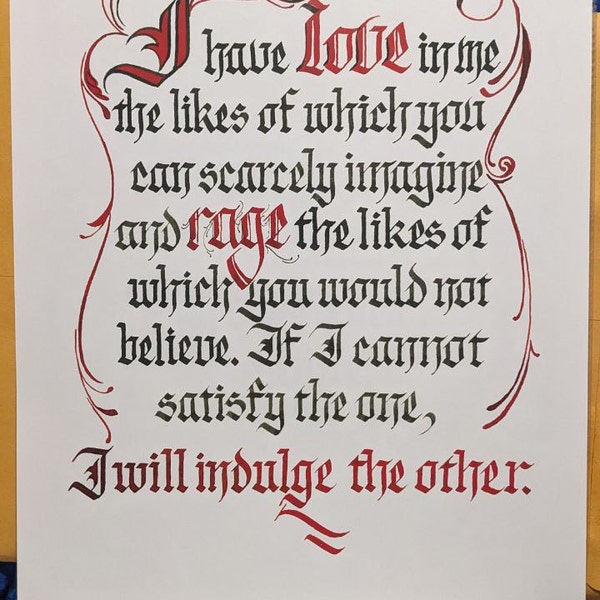 I have love in me
the likes of which you
can scarcely imagine
and rage the likes of
which you would not
believe. If I cannot
satisfy the one,
I will indulge the other.